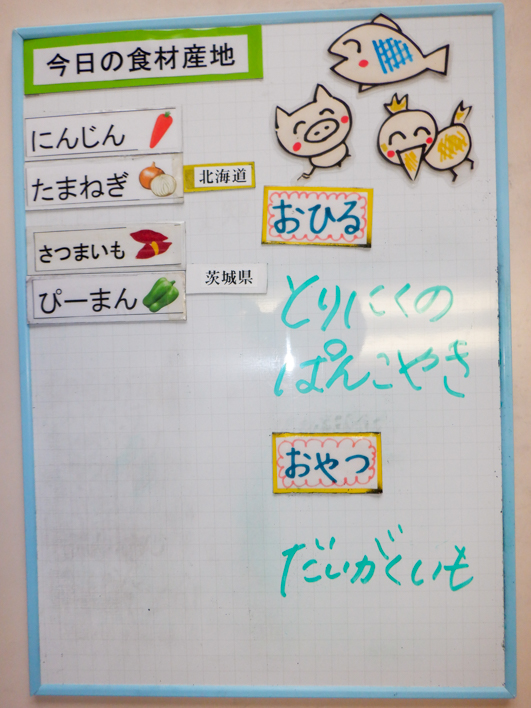 今日の食材産地
にんじん
たまねぎ
北海道
さつまいも
ぴーまん
茨城県
おひる
とりにくの
ぱんこやき
おやつ
だいがくいも